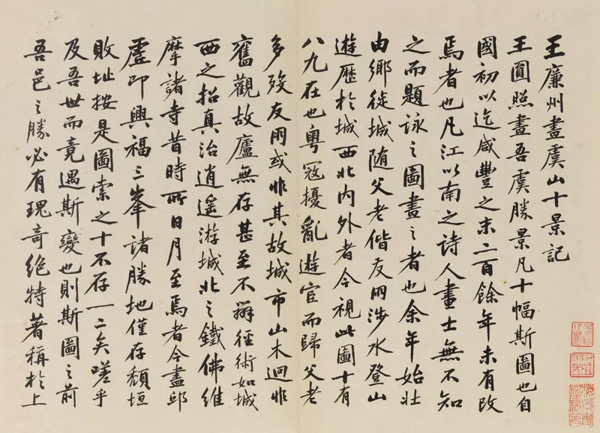 王廉州畫虞山十景記
王圓照畫吾虞勝景凡十幅斯圖也自
國初以迄咸豐之末二百餘年未有改
焉者也凡江以南之詩人畫士無不知
之而題詠之圖畫之者也余年始壯
由鄉徙城随父老偕友朋涉水登山
遊歷於城西北内外者今視此圖十有
八九在也粵寇擾亂遊宦而歸父老
多歿友朋或非其故城市山木迥非
舊觀故廬無存甚至不辨徑術如城
西之招真治逍遥游城北之鐵佛維
摩諸寺昔時所日月至焉者今盡邱
虛即興福三峯諸勝地僅存頹垣
敗址按是圖索之十不存一二矣嗟乎
及吾世而竟遇斯變也則斯圖之前
吾邑之勝必有瑰奇絕特著稱於上